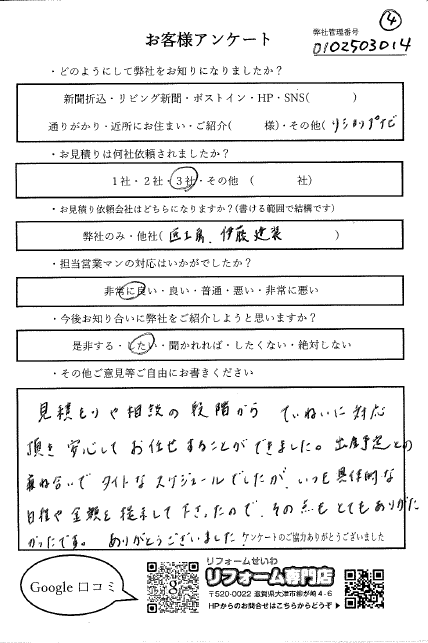 ④
お客様アンケート
弊社管理番号
0102503014
・どのようにして弊社をお知りになりましたか?
新聞折込・リビング新聞・ポストイン・HP・SNS( )
通りがかり・近所にお住まい・ご紹介( 様)・その他(リショップナビ
・お見積りは何社依頼されましたか?
1社・2社・3社・その他 ( 社)
・お見積り依頼会社はどちらになりますか?(書ける範囲で結構です)
弊社のみ・他社( 匠工房、伊藤建装 )
・担当営業マンの対応はいかがでしたか?
非常に良い・良い・普通・悪い・非常に悪い
・今後お知り合いに弊社をご紹介しようと思いますか?
是非する・したい・聞かれれば・したくない・絶対しない
・その他ご意見等ご自由にお書きください
見積もりや相談の段階から ていねいに対応
頂き安心してお任せすることができました。出産予定との
兼ね合いで タイトなスケジュールでしたが、いつも具体的な
日程や金額を提示して下さったので、その点もとてもありがた
かったです。 ありがとうございました
アンケートのご協力ありがとうございました
Google 口コミ
リフォームせいわ
リフォーム専門店
〒520-0022 滋賀県大津市柳が崎4-6
HPからのお問合せはこちらからどうぞ